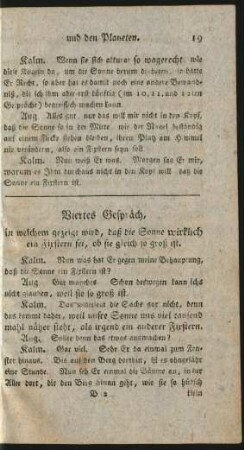 und den Planeten. 19
Kalm. Wenn sie sich allura so wagerecht wie
diese Kugeln da, um die Sonne herum drehten, so hätte
Er Recht, so aber hat es damit noch eine andere Bewandt-
niß, die ich ihm aber erst künftig (im 10, 11, und 12ten
Gespräche) begreiflich machen kann.
Aug. Alles gut, nur das will mir nicht in den Kopf,
daß die Sonne so in der Mitte, wie der Nagel beständig
auf einem Flecke stehen bleiben, ihren Platz am Himmel
nie verändern, also ein Fixstern seyn soll
Kalm. Nun weiß Er was. Morgen sag Er mir,
warum es Ihm durchaus nicht in den Kopf will, daß die
Sonne ein Fixstern ist.
Viertes Gespräch,
in welchem gezeigt wird, daß die Sonne wirklich
ein Fixstern sei, ob sie gleich so groß ist.
Kalm. Nun was hat Er gegen meine Behauptung,
daß die Sonne ein Fixstern ist?
Aug. Gar manches. Schon deswegen kann ichs
nicht glauben, weil sie so groß ist.
Kalm. Das macht die Sache gar nicht, denn
das kommt daher, weil unsre Sonne uns viel tausend
mahl näher steht, als irgend ein anderer Fixstern.
Aug. Sollte denn das etwas ausmachen?
Kalm. Gar viel. Sehe Er da einmal zum Fen-
ster hinaus. Bis auf den Berg dorthin, ist es ohngefähr
eine Stunde. Nun seh Er einmal die Bäume an, in der
Allee dort, die den Berg hinan geht, wie sie so hübsch
B 2 klein